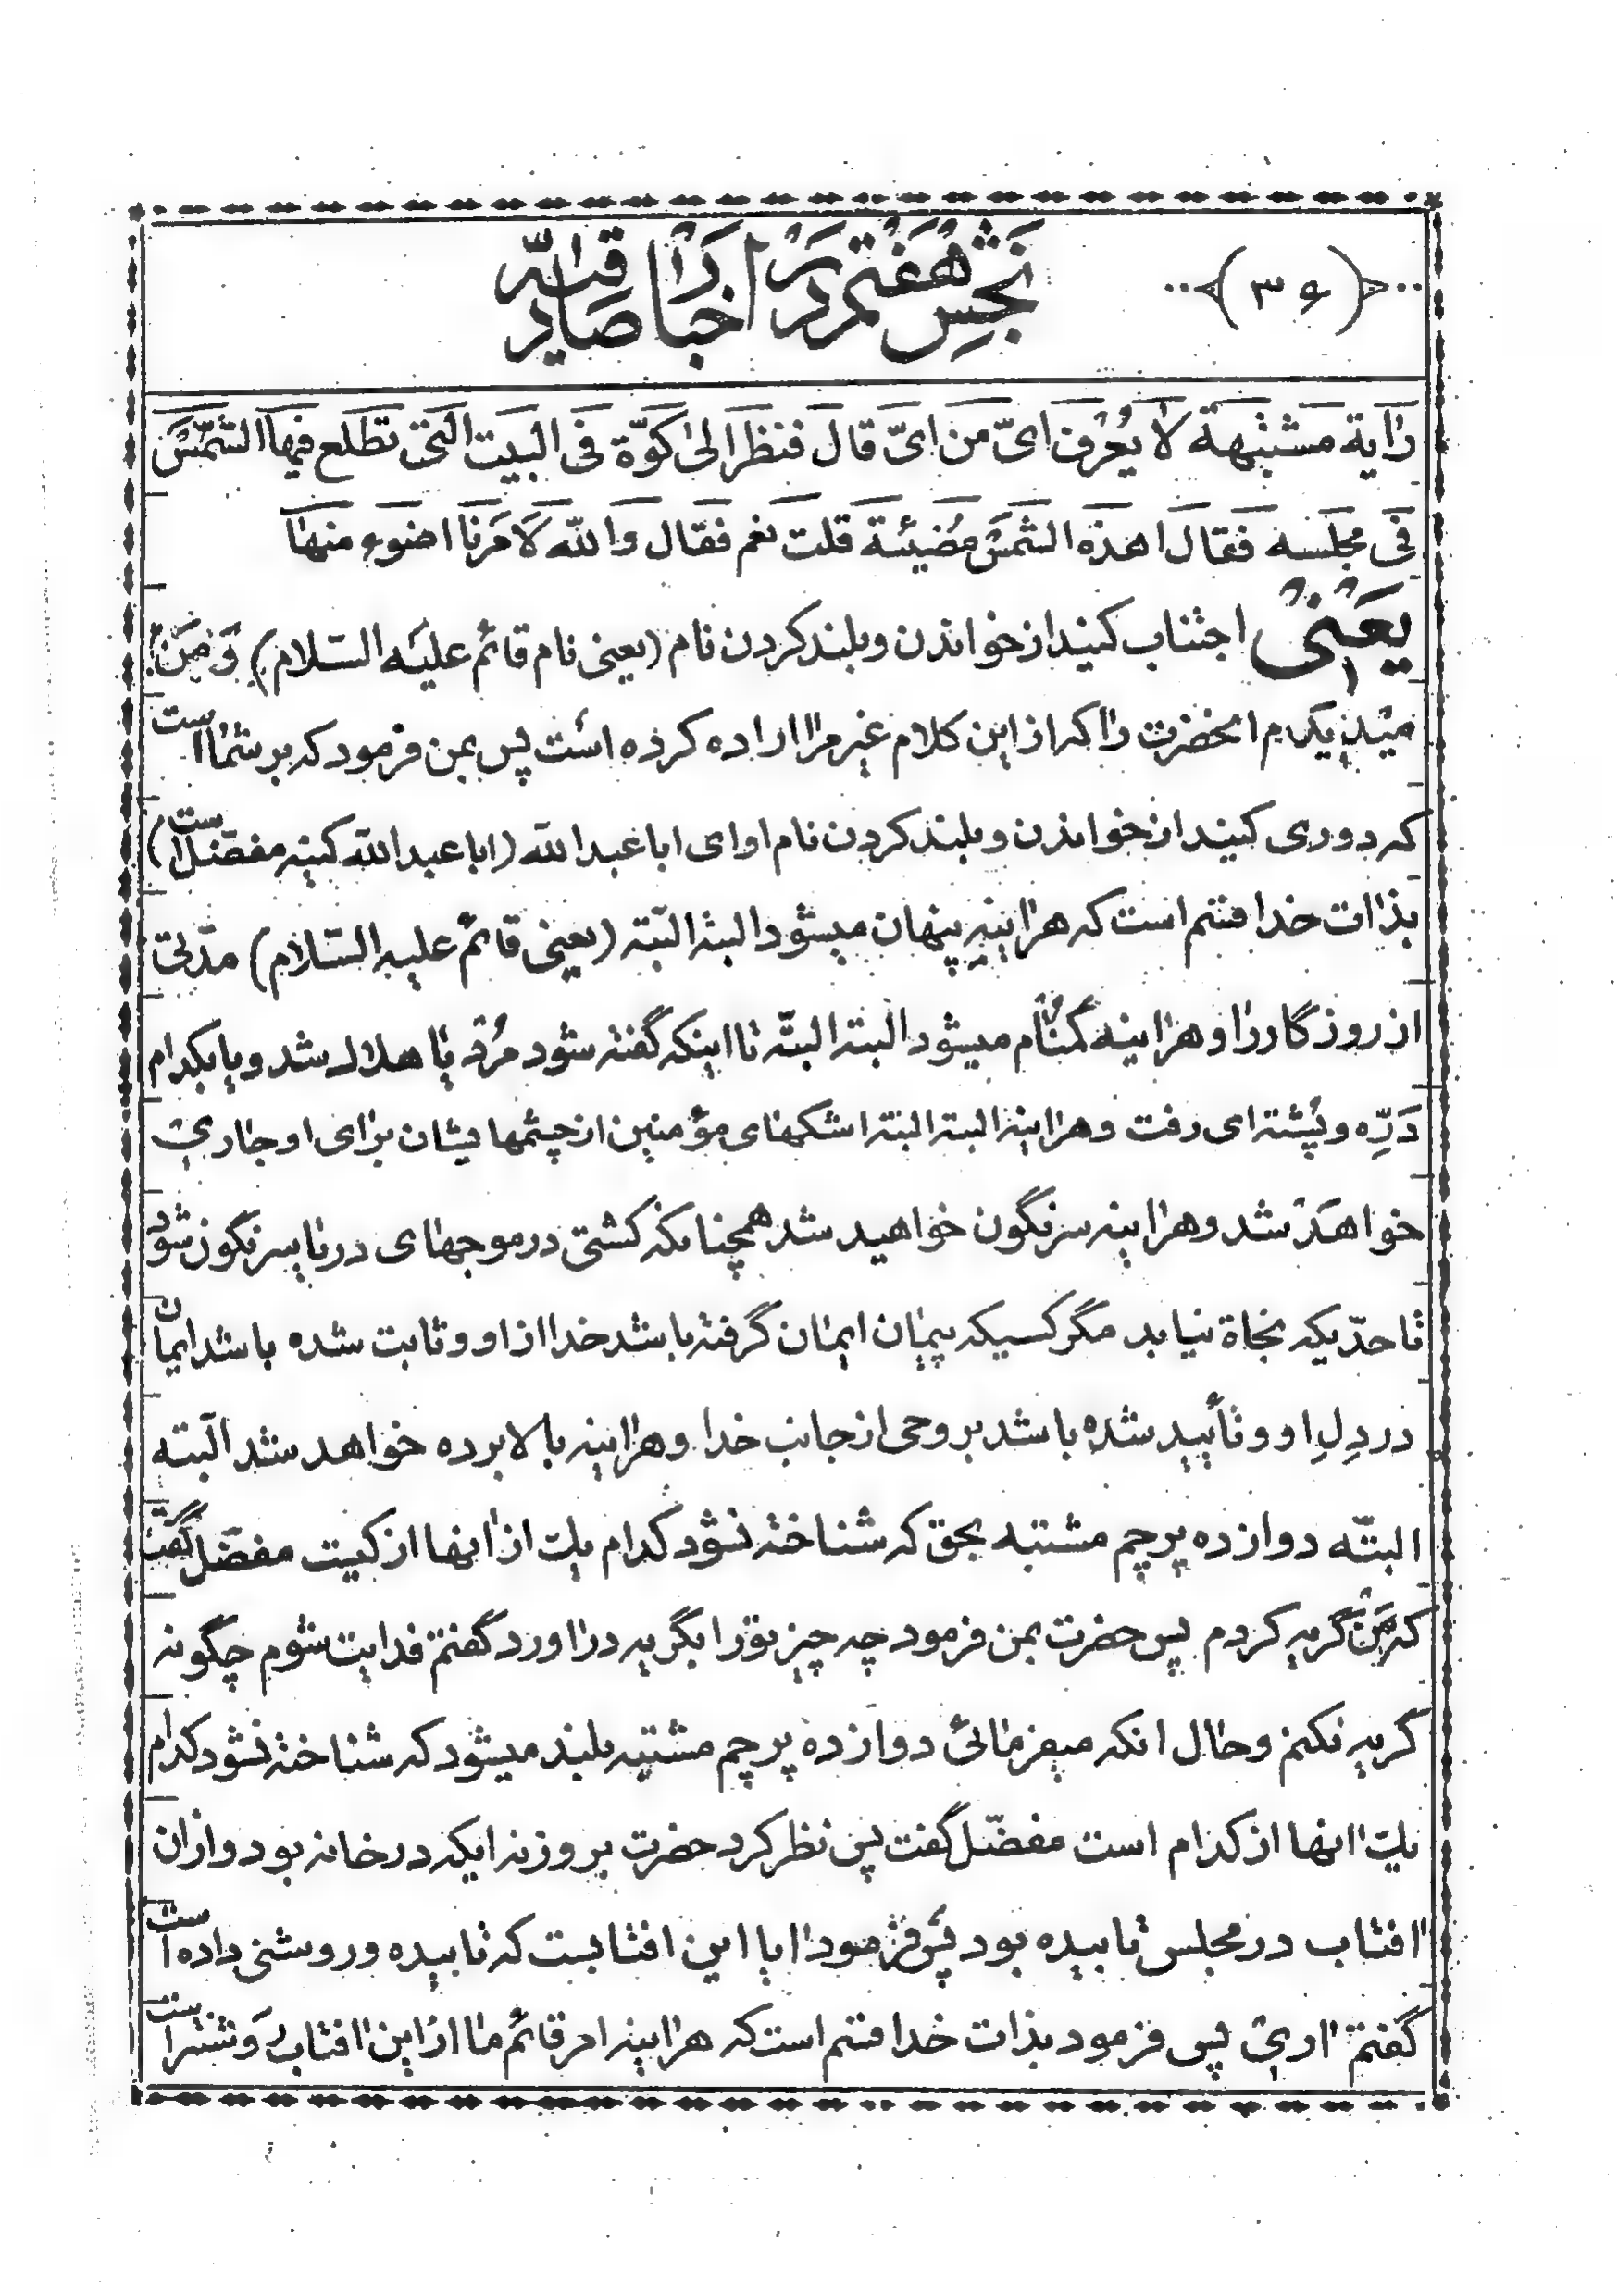 (۳۶)
بخش هفتم در اخبار صادقیه
رایة مشتبهة لا یعرف ایّ من ایّ قال فنظر الی کوّة فی البیت التی تطلع فیها الشمس
فی مجلسه فقال اهذه الشمس مضیئة قلت نعم فقال والله لامرنا اضوء منها
یعنی اجتناب کنید از خواندن و بلند کردن نام (یعنی نام قائم علیه السلام) و من
میدیدم انحضرت را که از این کلام غیر مرا اراده کرده است پس بمن فرمود که بر شما است
که دوری کنید از خواندن و بلند کردن نام او ای ابا عبد الله (ابا عبد الله کنیه مفضّل است)
بذات خدا قسم است که هراینه پنهان میشود البته البته (یعنی قائم علیه السلام) مدّتی
از روزگار را و هراینه گمنام میشود البته البتّه تا اینکه گفته شود مرد یا هلاک شد و یا بکدام
درّه و پشته ای رفت و هراینه البته البته اشکهای مؤمنین از چشمهایشان برای او جاری
خواهد شد و هراینه سرنگون خواهید شد همچنانکه کشتی در موجهای دریا سرنگون شود
تا حدّیکه نجاة نیابد مگر کسیکه پیمان ایمان گرفته باشد خدا از او و ثابت شده باشد ایمان
در دِلِ او و تأیید شده باشد بروحی از جانب خدا و هراینه بالا برده خواهد شد البته
البتّه دوازده پرچم مشتبه بحق که شناخته نشود کدام یک از انها از کیست مفضّل گفت
که من گریه کردم پس حضرت بمن فرمود چه چیز تو را بگریه دراورد گفتم فدایت شوم چگونه
گریه نکنم و حال انکه میفرمائی دوازده پرچم مشتبه بلند میشود که شناخته نشود کدام
یک انها از کدام است مفضّل گفت پس نظر کرد حضرت بروزنه ایکه در خانه بود و از ان
افتاب در مجلس تابیده بود پس فرمود ایا این افتابست که تابیده و روشنی داده است
گفتم اری پس فرمود بذات خدا قسم است که هراینه امر قائم ما از این افتاب روشنتر است